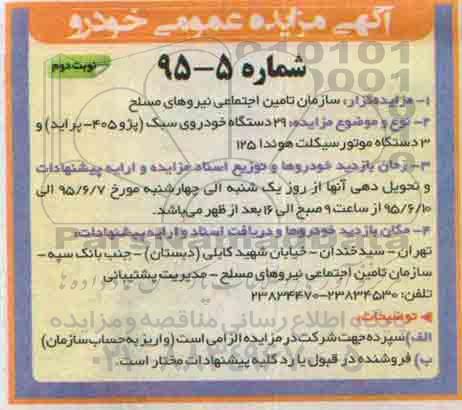 آگهی مزایده عمومی خودرو
نوبت دوم
شماره ۵-۹۵
۱- مزایده‌گزار: سازمان تامین اجتماعی نیروهای مسلح
۲- نوع و موضوع مزایده: ۲۹ دستگاه خودروی سبک (پژو ۴۰۵- پراید) و
۳ دستگاه موتور سیکلت هوندا ۱۲۵
۳- زمان بازدید خودروها و توزیع اسناد مزایده و ارایه پیشنهادات
و تحویل دهی آنها از روز یک شنبه الی چهارشنبه مورخ ۹۵/۶/۷ الی
۹۵/۶/۱۰ از ساعت ۹ صبح الی ۱۶ بعد از ظهر می‌باشد.
۴- مکان بازدید خودروها و دریافت اسناد و ارایه پیشنهادات:
تهران - سیدخندان - خیابان شهید کابلی (دبستان) - جنب بانک سپه -
سازمان تامین اجتماعی نیروهای مسلح - مدیریت پشتیبانی
تلفن: ۲۳۸۳۴۵۳۰-۲۳۸۳۴۴۷۰
توضیحات:
الف) سپرده جهت شرکت در مزایده الزامی است (واریز به حساب سازمان)
ب) فروشنده در قبول یا رد کلیه پیشنهادات مختار است.